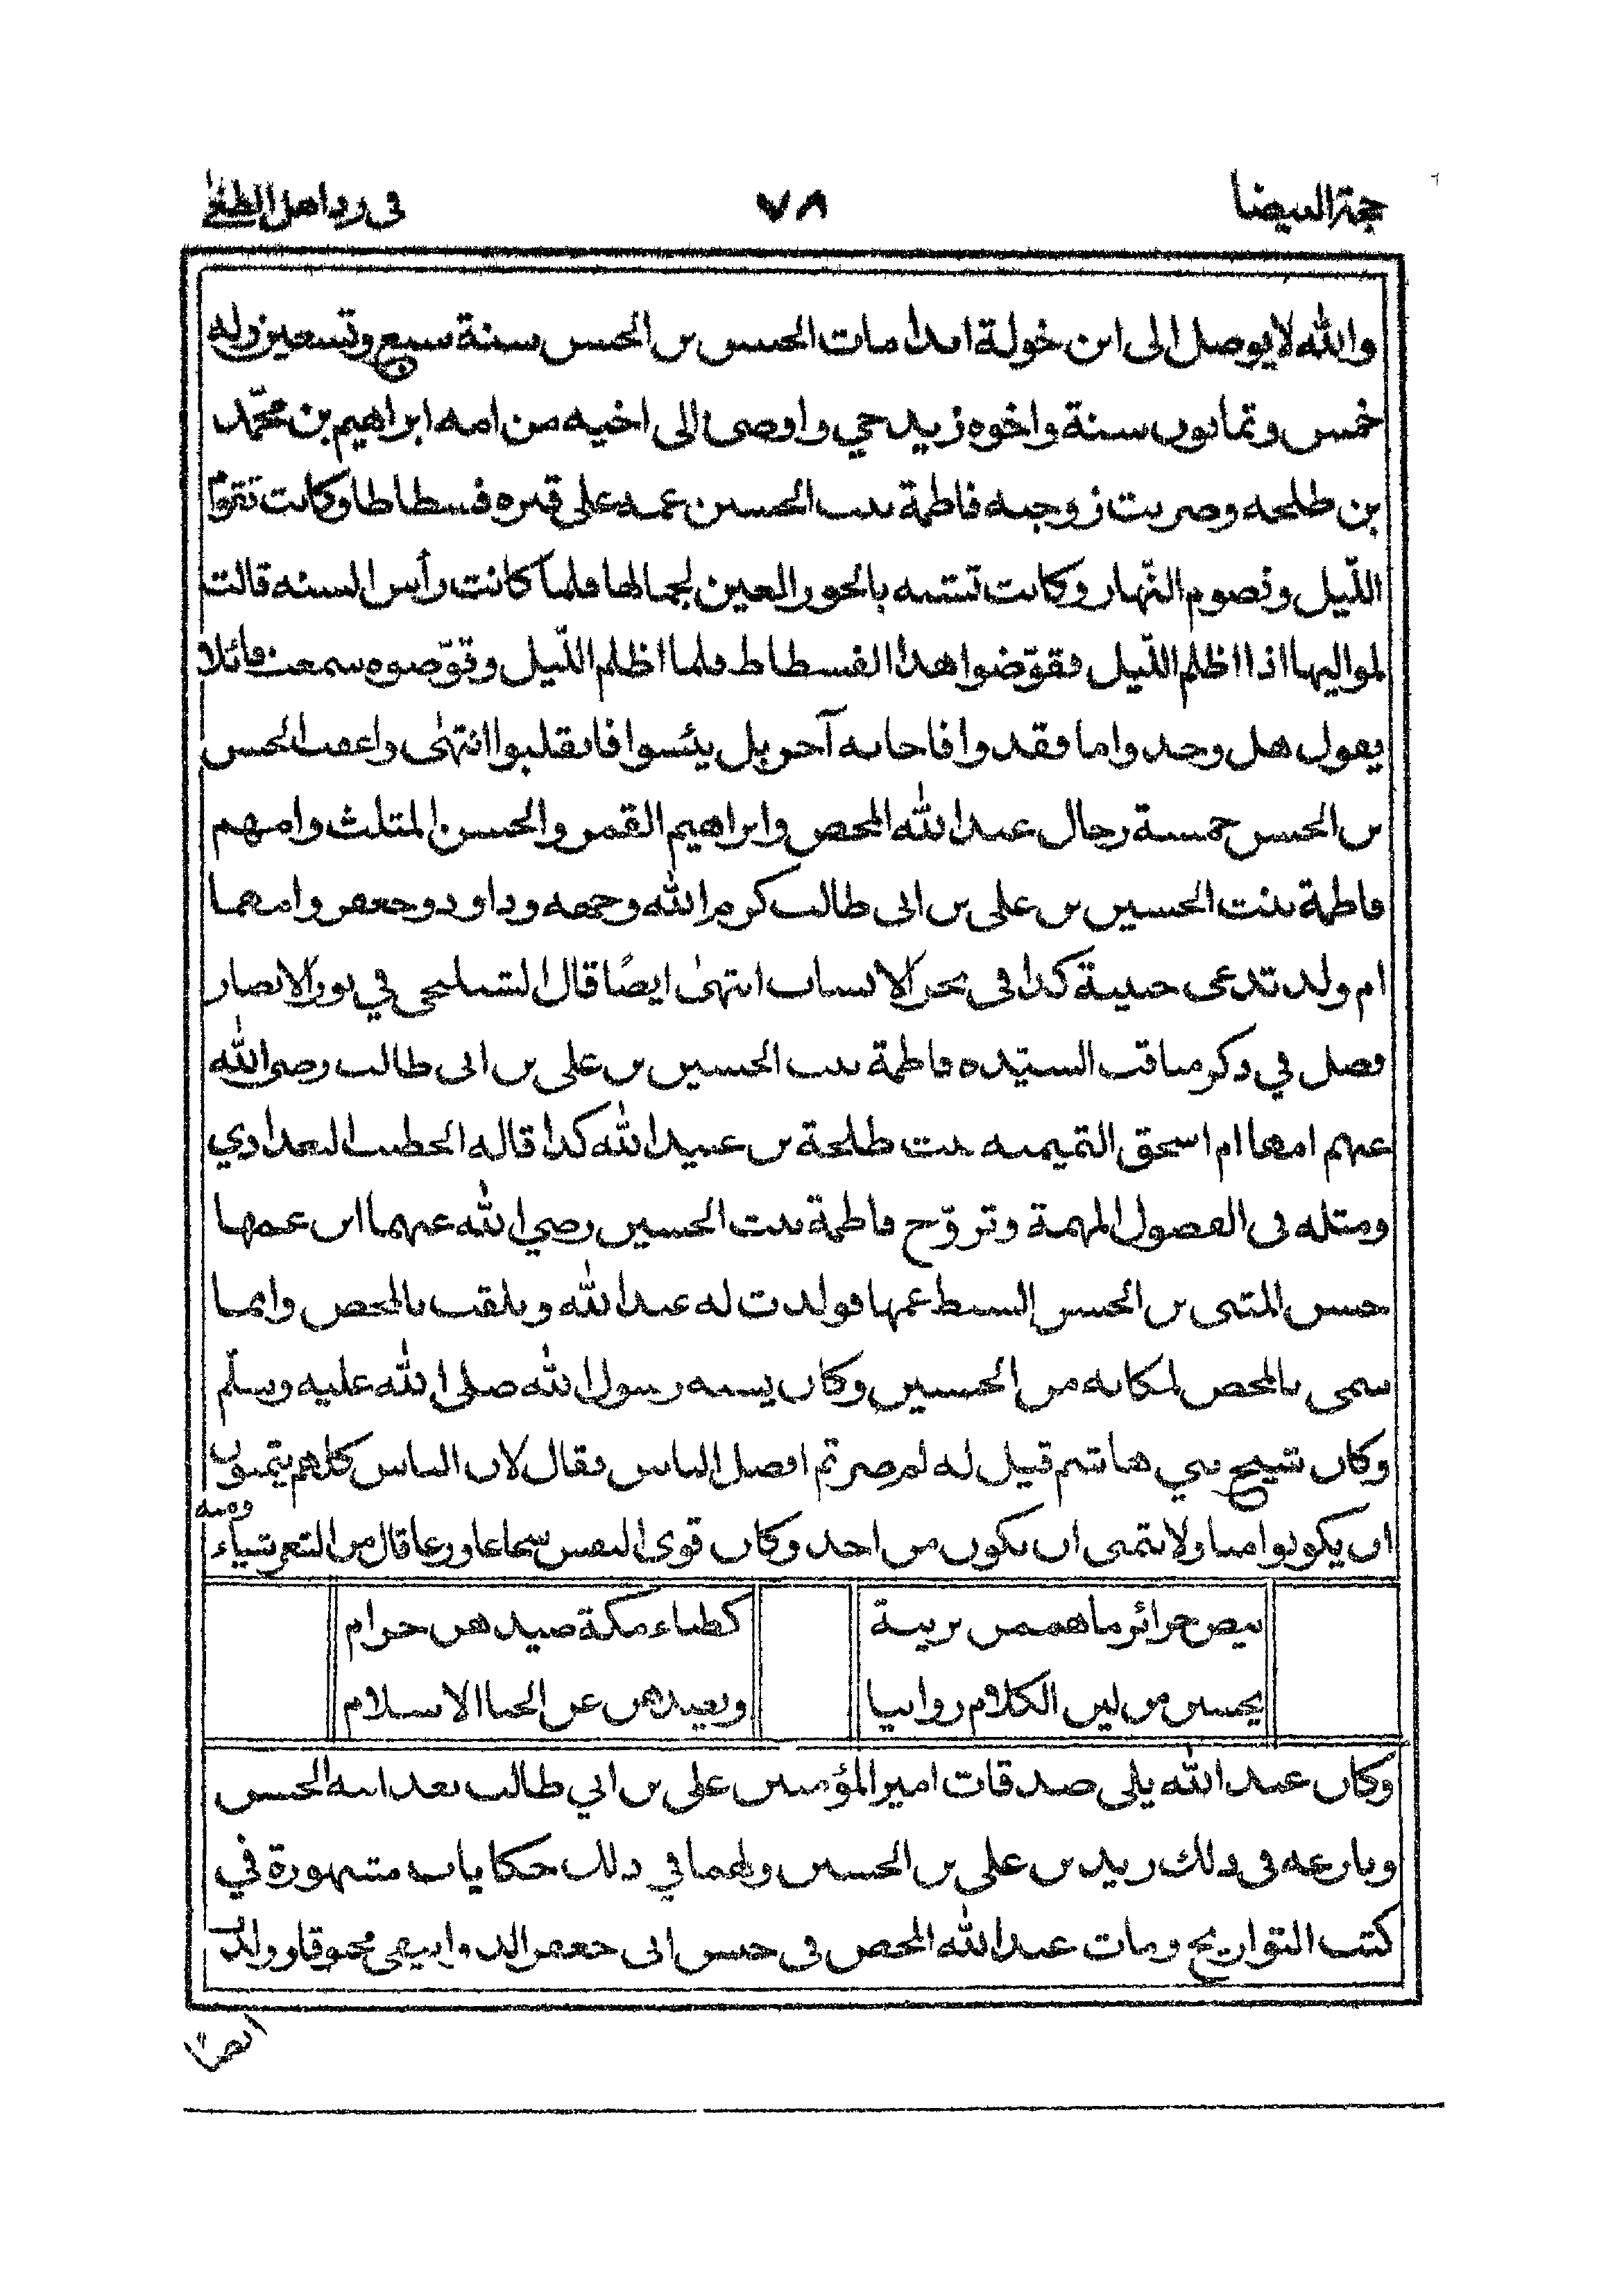 حجة البيضا ٧٨ فى رد اهل الطغى
والله لا يوصل الى ابن خولة ابدا مات الحسن بن الحسن سنة سبع وتسعين وله
خمس وثمانون سنة واخوه زيد حي واوصى الى اخيه من امه ابراهيم بن محمّد
بن طلحه وضربت زوجته فاطمة بنت الحسين عمه على قبره فسطاطا وكانت تقوم
اللّيل وتصوم النّهار وكانت تشبه بالحور العين لجمالها فلما كانت رأس السنه قالت
لمواليها اذا اظلم اللّيل فقوّضوا هذا الفسطاط فلما اظلم اللّيل وقوّضوه سمعت قائلا
يقول هل وجدوا ما فقدوا فاجابه آخر بل يئسوا فانقلبوا انتهى واعقب الحسن
بن الحسن خمسة رجال عبد الله المحض وابراهيم القمر والحسن المثلث وامهم
فاطمة بنت الحسين بن على بن ابى طالب كرم الله وجهه وداود وجعفر وامهما
ام ولد تدعى حبيبة كذا فى بحر الانساب انتهى ايضًا قال الشبلنجى في نور الابصار
فصل في ذكر مناقب السيّده فاطمة بنت الحسين بن على بن ابى طالب رضى الله
عنهم امها ام اسحق التيميه بنت طلحة بن عبيد الله كذا قاله الخطيب البغدادي
ومثله فى الفصول المهمة وتزوّج فاطمة بنت الحسين رضي الله عنهما ابن عمها
حسن المثنى بن الحسن السبط عمها فولدت له عبد الله ويلقب بالمحض وانما
سمى بالمحض لمكانه من الحسين وكان يشبه رسول الله صلى الله عليه وسلّم
وكان شيخ بني هاشم قيل له لم صرتم افضل الناس فقال لان الناس كلهم يتمنون
ان يكونوا منا ولا نتمنى ان نكون من احد وكان قوى النفس شجاعا ورعا قال من الشعر شياء
ومنه
بيض حرائر ما هممن بريبة كظباء مكة صيدهن حرام
يحسبن من لين الكلام روانيا ويصيدهن عن الخنا الاسلام
وكان عبد الله يلى صدقات امير المؤمنين على بن ابي طالب بعد ابيه الحسن
ونازعه فى ذلك زيد بن على بن الحسين ولهما في ذلك حكايات مشهورة في
كتب التواريخ ومات عبد الله المحض فى حبس ابى جعفر الدوانيقى مخنوقا
ايضًا